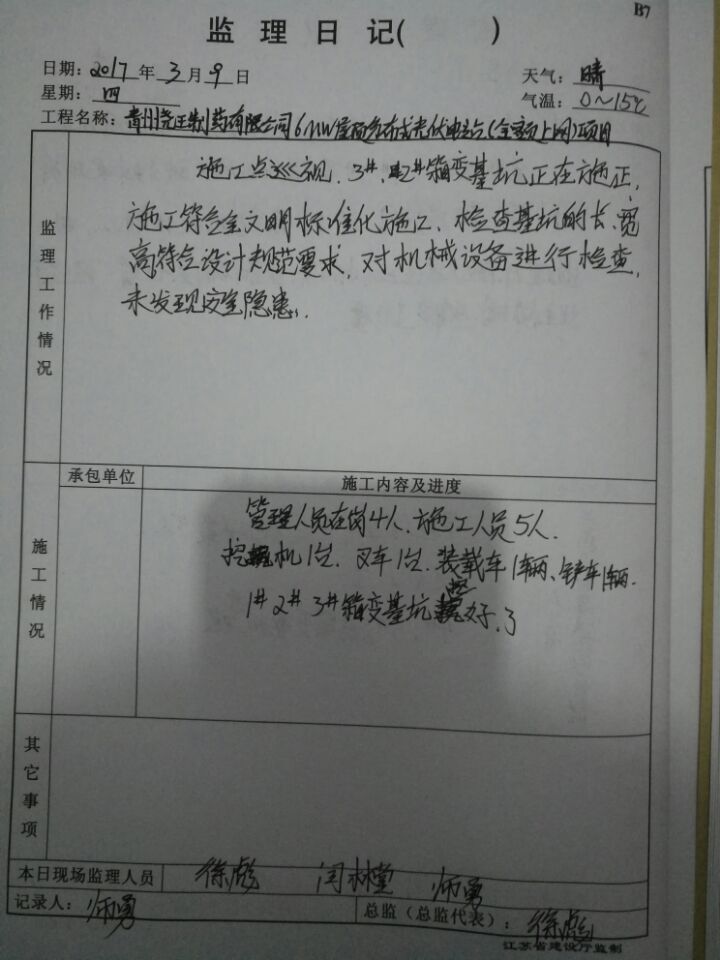 B7
监理日记( )
日期：2017年3月9日 天气：晴
星期：四 气温：0～15℃
工程名称：青州尧王制药有限公司6MW屋顶分布式光伏电站(全额上网)项目
监理工作情况
施工点巡视，3#、2#箱变基坑正在施正，
施工符合全文明标准化施工，检查基坑的长、宽
高符合设计规范要求，对机械设备进行检查，
未发现安全隐患。
施工情况
承包单位 施工内容及进度
管理人员在岗4人，施工人员5人，
挖掘机1台，叉车1台，装载车1辆、铲车1辆.
1# 2# 3#箱变基坑挖好了
其它事项
本日现场监理人员 徐彪 闫林堂 师勇
记录人：师勇 总监（总监代表）：徐彪
江苏省建设厅监制